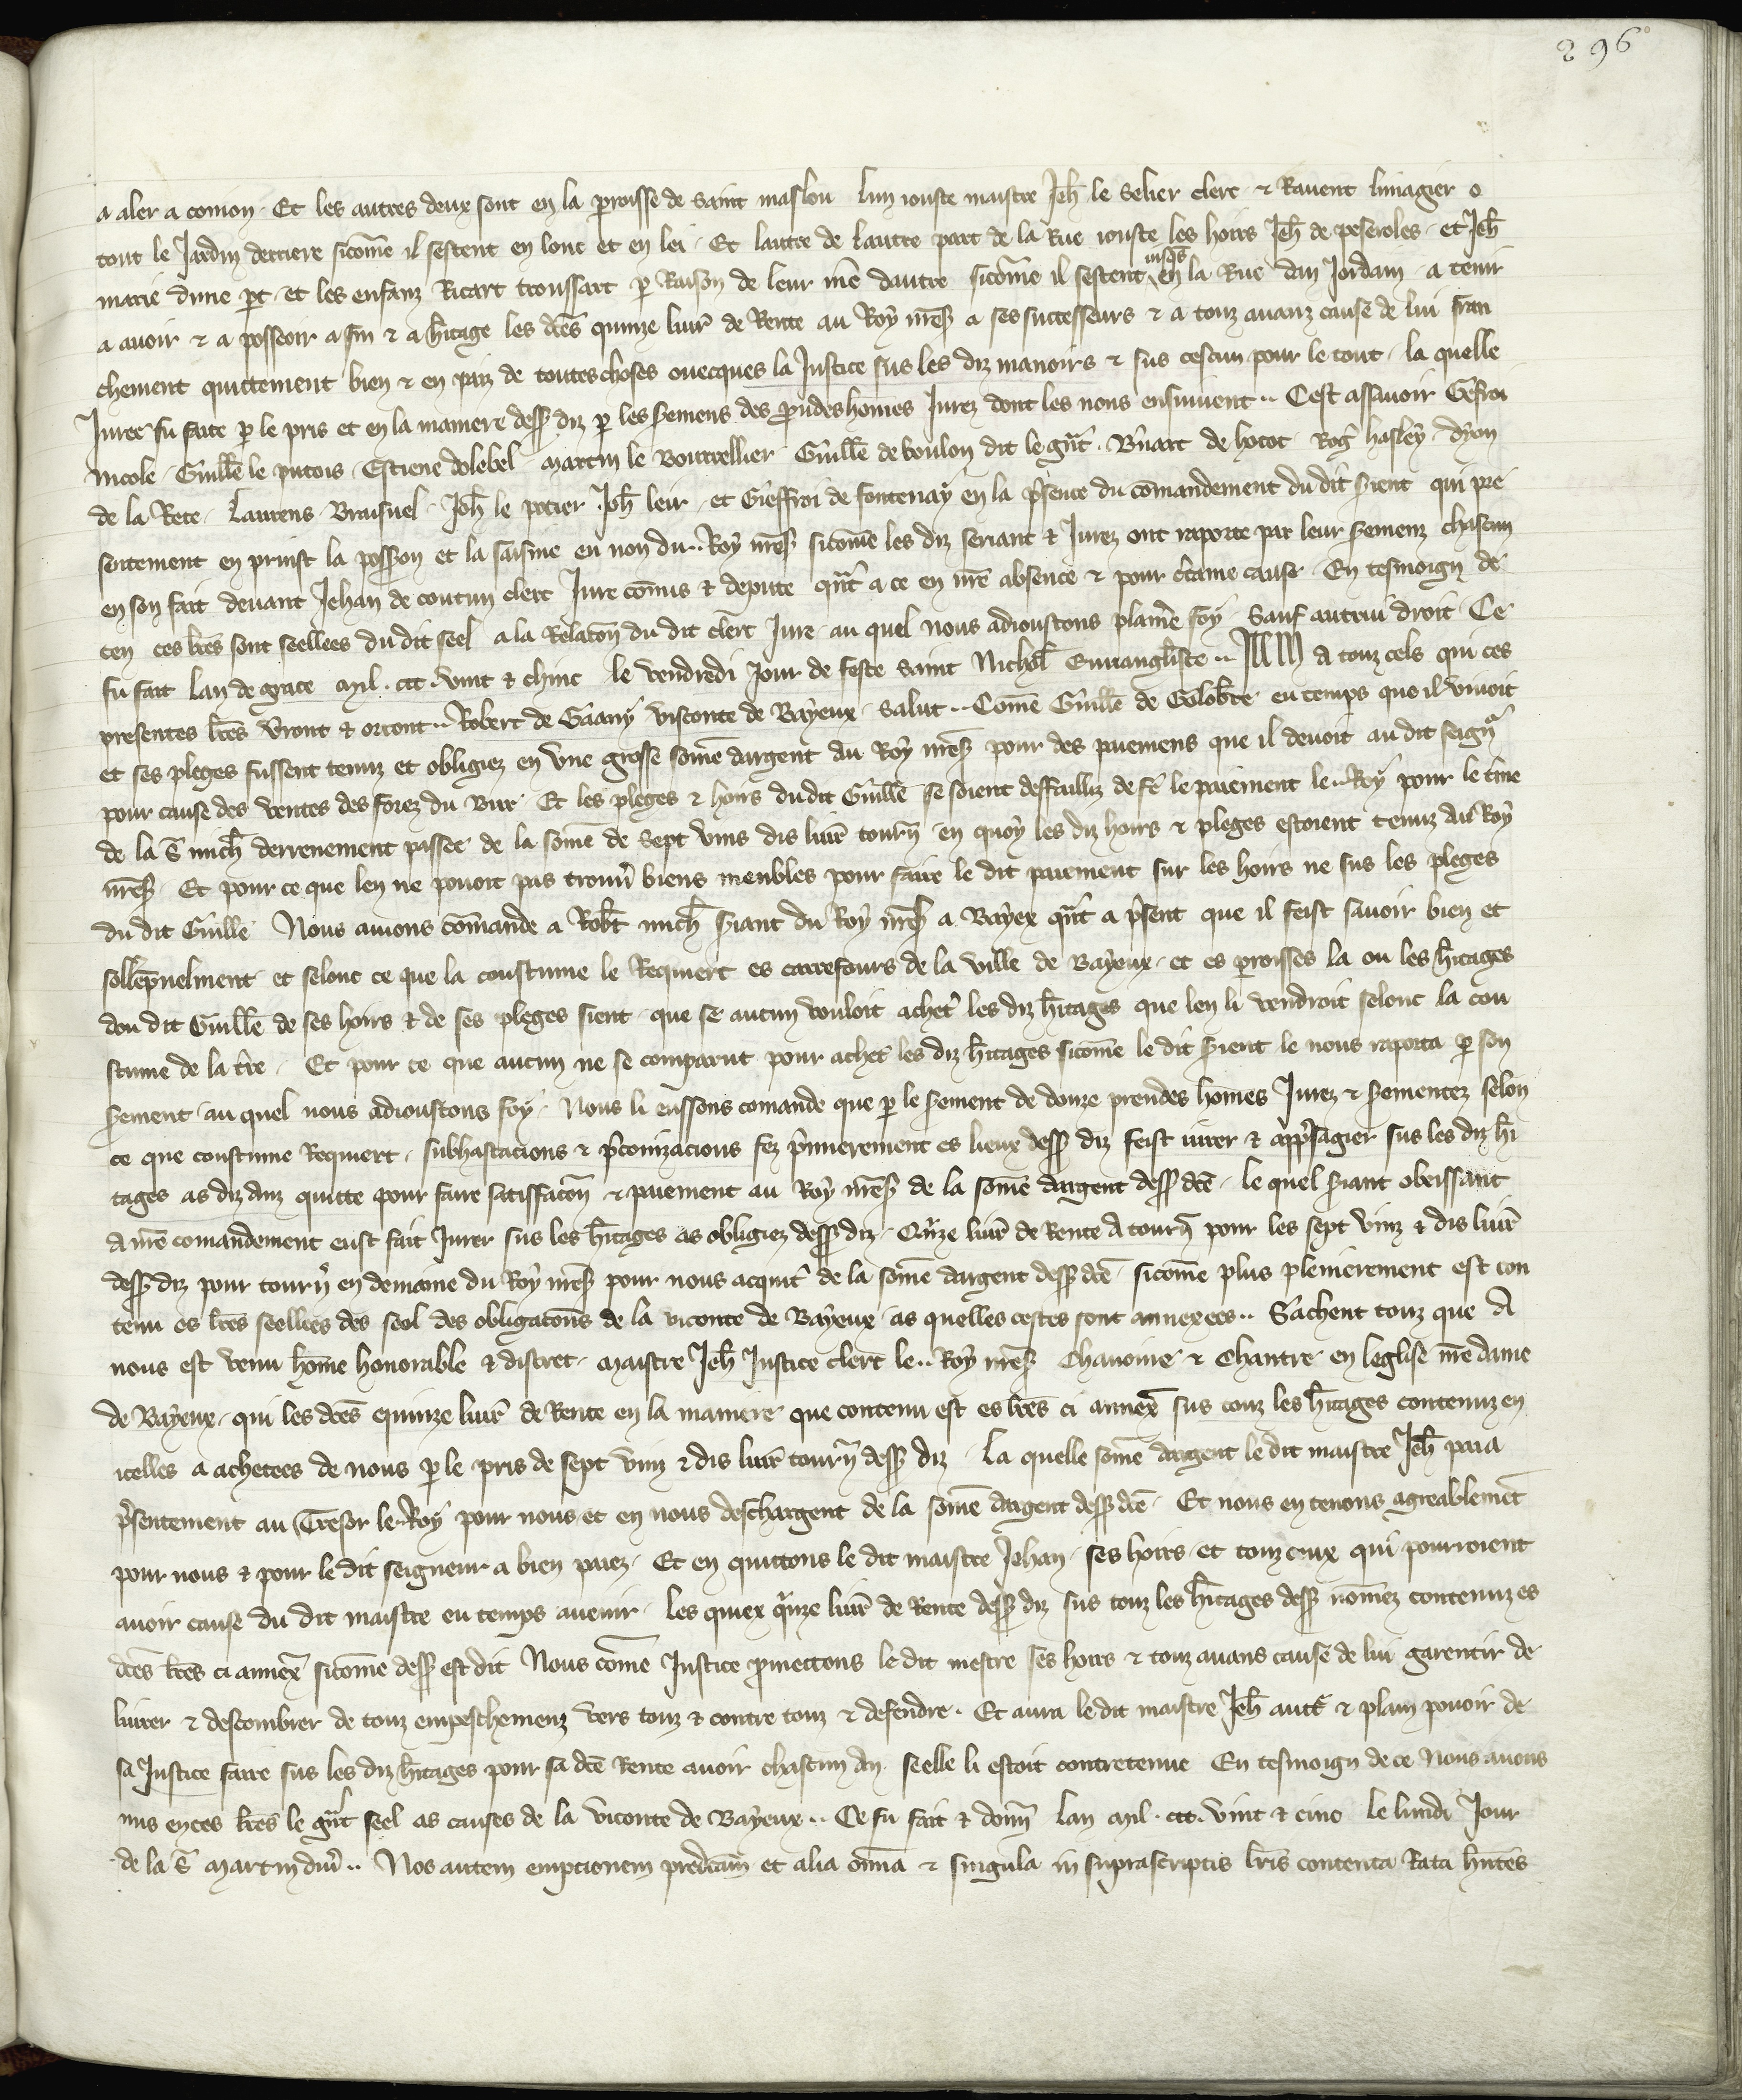 296
a aler a comon. Et les autres deux sont en la proisse de saint maslou lun iouste maistre Jeh̄ le Selier clerc & Rauent limagier o
tout le Jardin derriere sicom̄e il sestent en lonc et en lei. Et lautre de lautre part de la Rue iouste les hoirs Jeh̄ de peseroles. et Jeh̄
marie dune pt. et les enfanz Ricart troussart p Raison de leur me᷑ dautre sicom̄e il sestent iusqs en la Rue dan Jordain. a tenir
a auoir & a posseoir a fin & a h̄itage les dces quinze liur̄ de Rente au Roy nr̄es̄ a ses successeurs & a touz auanz cause de lui fran
chement quittement bien & en paiz de toutes choses ouecques la Justice sus les diz manoirs & sus cescun pour le tout. la quelle
Juree fu faite p le pris et en la maniere dess̄ diz p les sermens des p̄udeshomes Jurez dont les nons ensuiuent.. Cest assauoir Gefroi
nicole. Guill̄e le putois. Estiene dolebel. martin le Bourrellier. Guill̄e de boulon dit le gr̄nt. B̄nart de hotot Rog̾ hasley. dyon
de la Rete. Laurens Braisuel. Joh̄ le potier Joh̄ leir. et Gieffroi de fontenay en la p̄sence du com̄andement du dit s̄ient qui pre
sentement en prinst la poss̄ion et la saisine eu non du.. Roy nr̄es̄ sicom̄e les diz seriant & Jurez ont raporte par leur s̄emenz chascun
en son fait deuant Jehan de coutun clerc Jure com̄is & depute qn̄t a ce en nr̄e absence & pour c̄taine cause. En tesmoign de
cen ces lr̄es sont seellees du dit seel a la Relacōn du dit clerc Jure au quel nous adioustons plaine foy. Sauf autrui droit. Ce
fu fait lan de grace mil. ccc. vint & chinc le vendredi Jour de feste saint Nichol̄ Euuangliste.. A touz cels qui ces
presentes lr̄es v̄ront & orront.. Robert de Gaany visconte de Bayeux. Salut.. Com̄e Guill̄e de Golob̄te eu temps que il viuoit
et ses pleges fussent tenuz et obligiez en vne grosse som̄e dargent au Roy nr̄es̄ pour des paiemens que il deuoit au dit seign̄r
pour cause des ventes des forez du Bur. Et les pleges & hoirs du dit Guill̄e se soient deffailliz de fe᷑ le paiement le.. Roy pour le t̄me
de la s̄ mich̄ derrenement passee de la som̄e de sept vins dis liur̄ tourn̄ en quoy les diz hoirs & pleges estoient tenuz au Roy
nr̄es̄. Et pour ce que len ne pouoit pas trouu̾ biens meubles pour faire le dit paiement sur les hoirs ne sus les pleges
du dit Guill̄e Nous auions com̄ande a Rob̄t mich̄ s̄iant du Roy nr̄es̄ a Bayex qn̄t a p̄sent que il feist sauoir bien et
sollēpnelment et selonc ce que la coustume le Requiert es carrefours de la ville de Bayeux. et es proisses la ou les h̄itages
dou dit Guill̄e de ses hoirs & de ses pleges sient. que se aucun vouloit achet̾ les diz h̄itages que len li vendroit selonc la cou
stume de la t̄re. Et pour ce que aucun ne se comparut pour achet̾ les diz h̄itages sicom̄e le dit s̄ient le nous raporta p son
s̄ement au quel nous adioustons foy. Nous li eussons comande que p le s̄ement de douze preudes hom̄es Jurez & s̄ementez selon
ce que coustume Requiert. subhastacions & p̄conizacions fez p̄mierement es lieux dess̄ diz feist iurer & app̄sagier sus les diz h̄i
tages as diz diz quitte pour faire satisffacōn & paiement au Roy nr̄es̄ de la som̄e dargent dess̄ dc̄e. le quel s̄iant obeissant
a nr̄e comandement eust fait Jurer sus les h̄itages as obligiez dess̄ diz. Qu̾ze liur̄ de Rente a tourn̄ pour les sept vinz & dis liur̄
dess̄ diz pour tourn̾ en demaine du Roy nr̄es̄ pour nous acquit̾ de la som̄e dargent dess̄ dc̄e. sicom̄e plus plenierement est con
tenu es lr̄es seellees des seel des obligacōns de la viconte de Bayeux. as quelles cestes sont annexees.. Sachent touz que a
nous est venu hom̄e honorable & discret. maistre Jeh̄ Justice clerc le.. Roy nr̄es̄ chanoine & chantre en leglise nr̄e dame
de Bayeux. qui les dces quinze liur̄ de Rente en la maniere que contenu est es lr̄es ci annex̄ sus touz les h̄itages contenuz en
icelles a achetees de nous p le pris de sept vinz & dis liur̄ tourn̄ dess̄ diz. La quelle som̄e dargent le dit maistre Jeh̄ paia
p̄sentement au Tresor le.. Roy pour nous et en nous deschargent de la som̄e dargent dess̄ dc̄e. Et nous en tenons agreablemēt
pour nous & pour le dit seigneur a bien paiez. Et en quittons le dit maistre Jehan. ses hoirs et touz ceux qui pourroient
auoir cause du dit maistre eu temps auenir. les quiex qu̾nze liur̄ de Rente dess̄ diz sus touz les h̄itages dess̄ nom̄ez contenuz es
dces lr̄es ci annex̄ sicom̄e dess̄ est dit Nous com̄e Justice p̄mettons le dit mestre ses hoirs & touz auans cause de lui garentir de
liurer & descombrer de touz empeschemenz vers touz & contre touz & defendre. Et aura le dit maistre Jeh̄ autē & plain pouoir de
sa Justice faire sus les diz h̄itages pour sa dc̄e Rente auoir chascun an. seelle li estoit contretenue En tesmoign de ce Nous auons
mis en ces lr̄es le gr̄nt seel as causes de la viconte de Bayeux.. Ce fu fait & donn̄ lan mil. ccc. vint & cinc le lundi Jour
de la s̄ martin diu̾.. Nos autem empcionem predicam̄ et alia om̄ia & singula in suprascriptis lr̄is contenta Rata hn̄tes